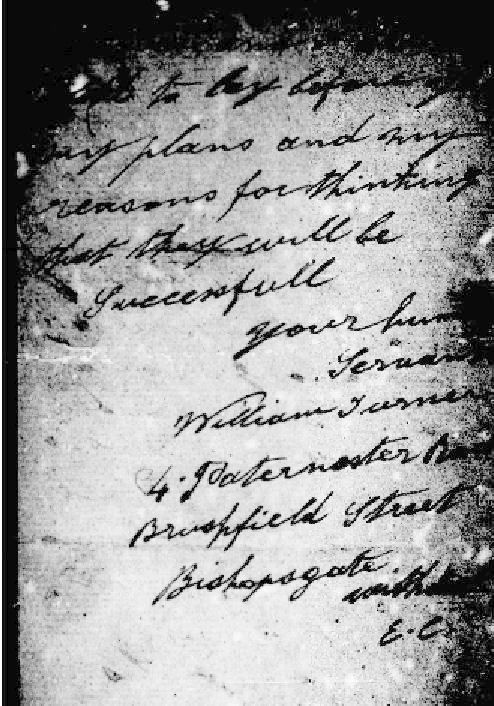 to lay before
my plans and my
reasons for thinking
that they will be
Successfull
your hum
Servan
William Turner
4. Paternoster
Brushfield Street
Bishopsgate
E.C.